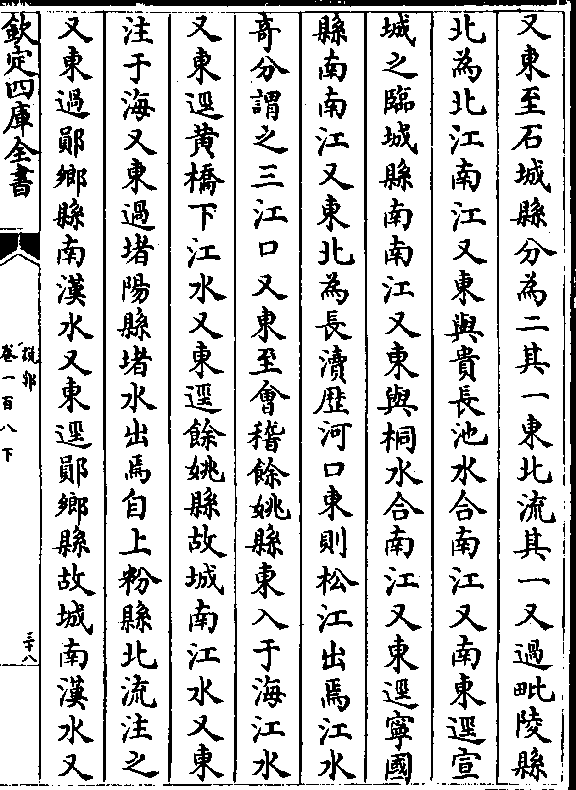 又東至石城縣分為二其一東北流其一又過毗陵縣
北為北江南江又東與貴長池水合南江又南東逕宣
城之臨城縣南南江又東與桐水合南江又東逕寧國
縣南南江又東北為長瀆歴河口東則松江出焉江水
奇分謂之三江口又東至會稽餘姚縣東入于海江水
又東逕黄橋下江水又東逕餘姚縣故城南江水又東
注于海又東過堵陽縣堵水出焉自上粉縣北流注之
又東過鄖鄉縣南漢水又東逕鄖鄉縣故城南漢水又
欽定四庫全書
說郛
卷一百八下
三十八